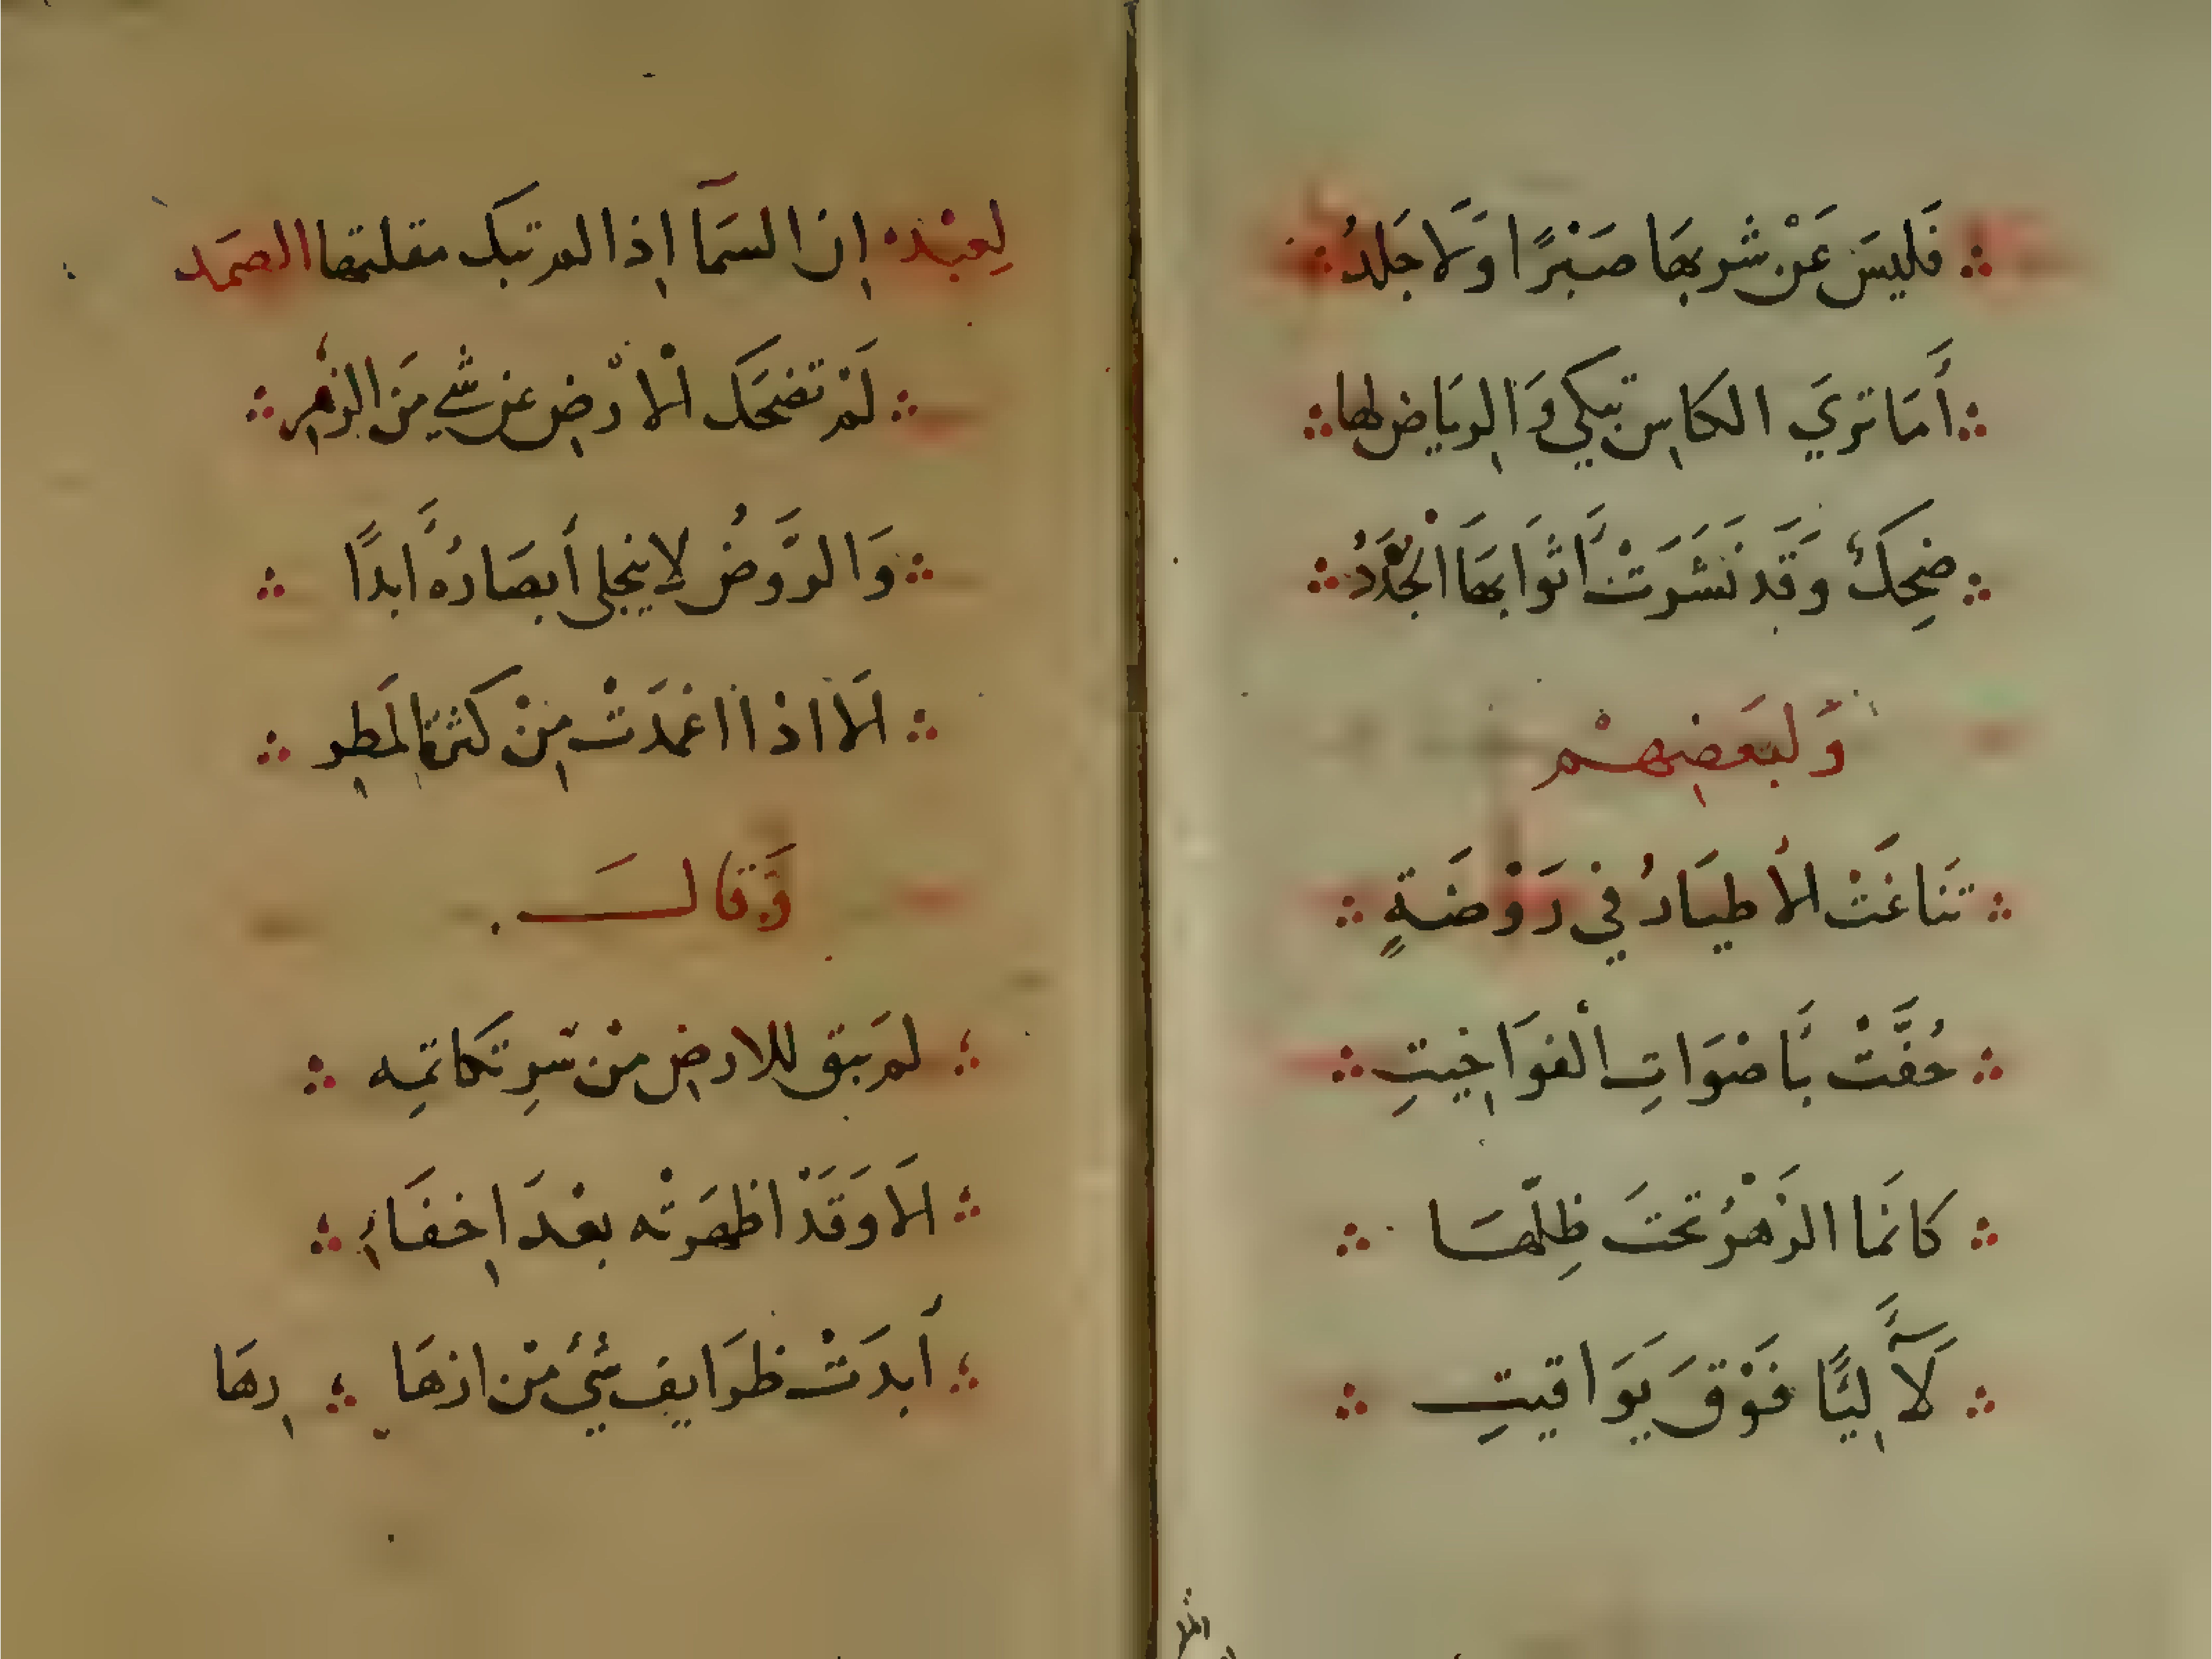 فَليسَ عَنْ شربهَا صَبْرًا وَلَا جَلدُ
أَمَا تريَ الكاسِ تبكي وَالرياض لها
ضِحِكٌ وَقَد نَشَرَتْ أَثوَابهَا الْجُدَدُ
وَلبَعَضِهِمْ
تَنَاغَتْ الأطيَارُ في رَوْضَةٍ
حُفَّتْ بَأصْوَاتِ الْفوَاخِيتِ
كانَما الزَهْرُ تحتَ ظِلّهَا
لَآلِيًّا فَوْقَ يَوَاقيتِ
لِعبْد إِن السَمآ إِذا لم تبكِ مقلتها الصمَد
لَمْ تضحَك الْارْضِ عن شيٍ مَن الزهرِ
وَالرَّوضُ لا ينجلي أَبصَارُهُ أَبدًا
الَا اذا اغمدَتْ مِنْ كثرةِ المَطِر
وَقَالَ
لم يَبق للارضِ منْ سِرٍ تكاتمِه
الَا وَقَدْ اظهَرتْه بعْدَ اِخفَاءِ
أَبدَتْ ظرَايف شَيْءٍ منْ ازهَا رِهَا